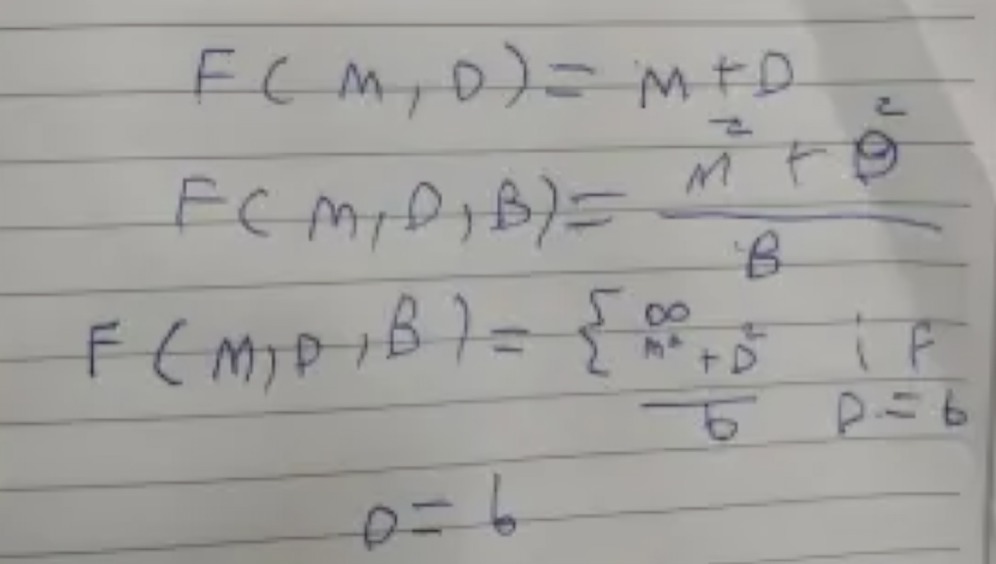 F(M,D)= M+D
F(M,D,B)= M²+D²/B
F(M,D,B)= { ∞ if
M²+D²/b D=b
D=b